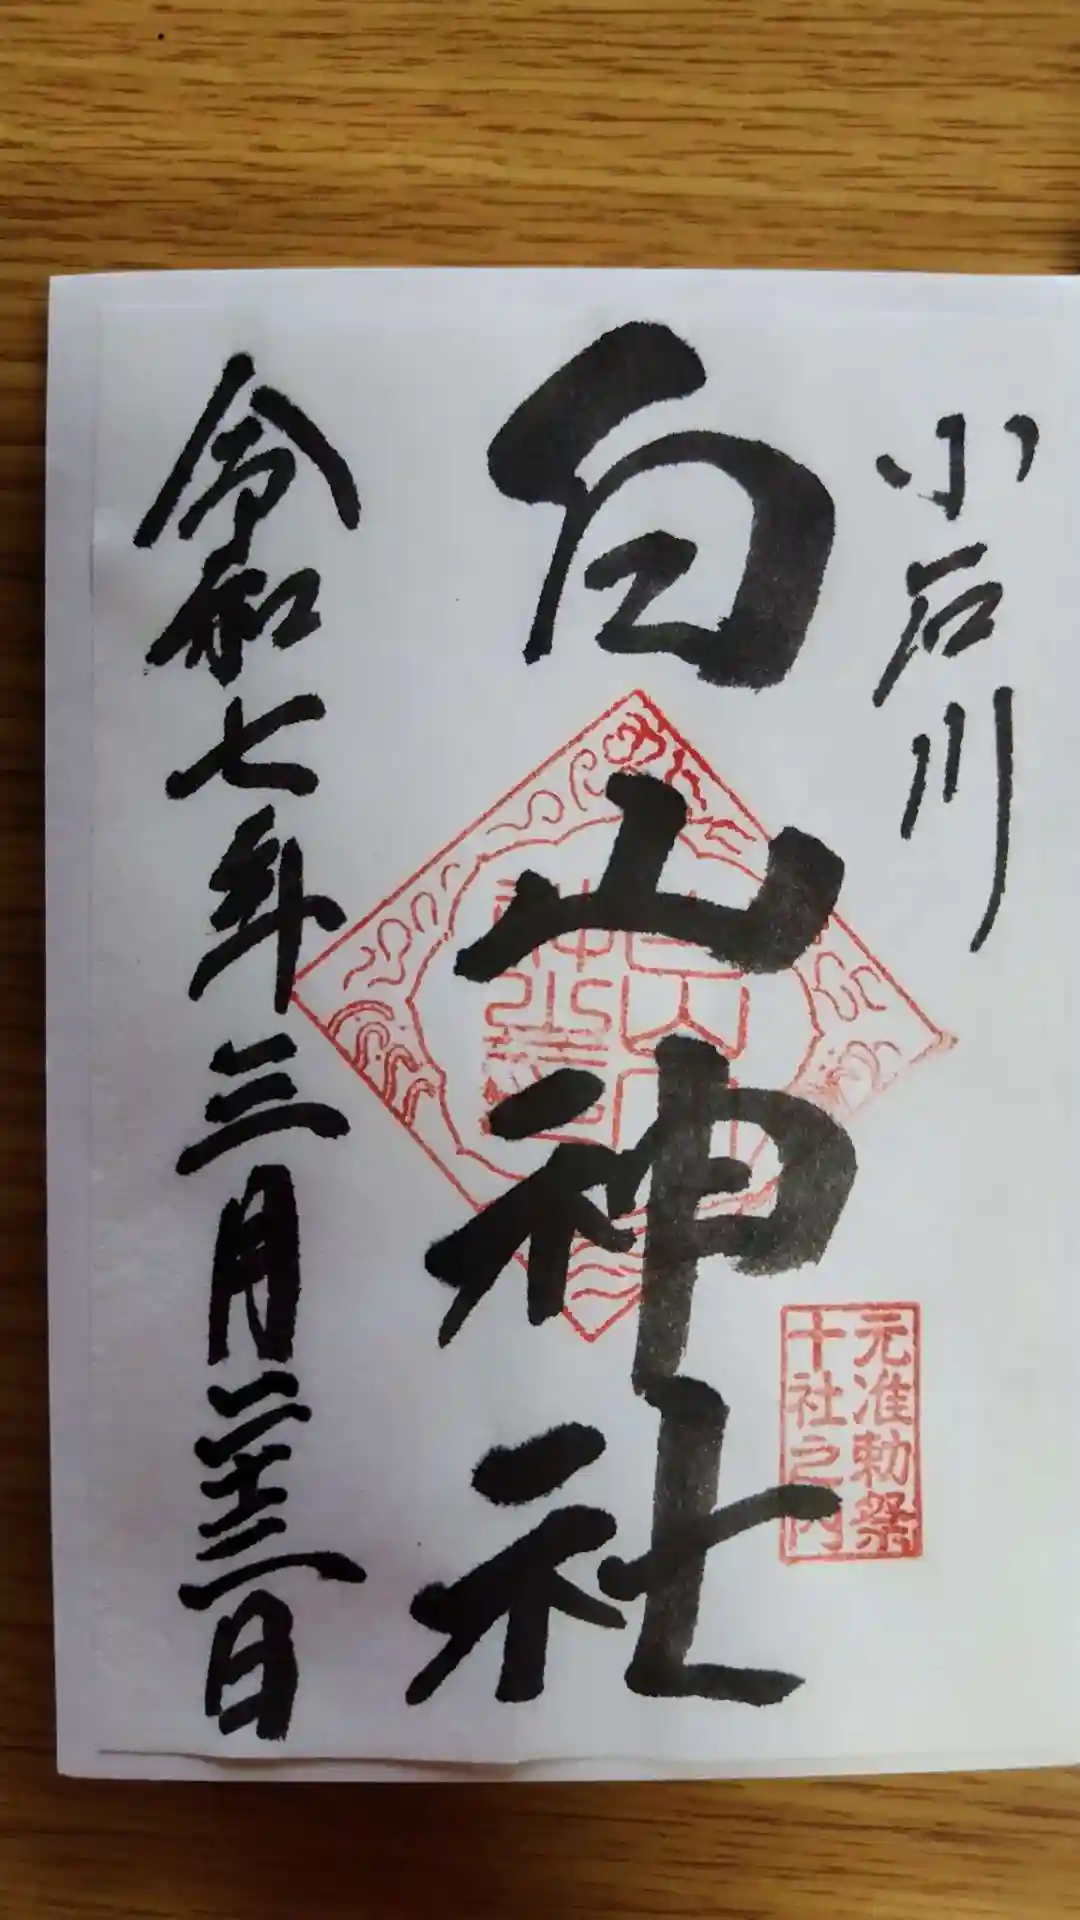 小石川
白山神社
元准勅祭
十社之内
令和七年三月二十三日